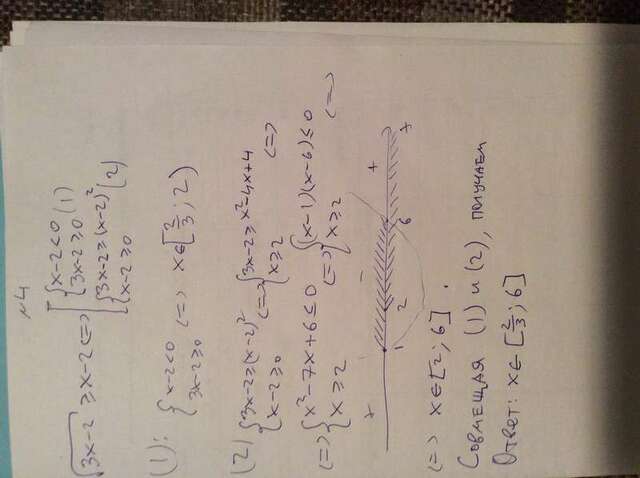 №4
√(3x-2) ≥ x-2 <=> [ { x-2<0
3x-2≥0 (1)
{ 3x-2≥(x-2)²
x-2≥0 (2)
(1): { x-2<0
3x-2≥0 <=> x∈[2/3; 2)
(2) { 3x-2≥(x-2)²
x-2≥0 <=> { 3x-2≥x²-4x+4
x≥2 <=>
<=> { x²-7x+6≤0
x≥2 <=> { (x-1)(x-6)≤0
x≥2 <=>
+ - +
1 2 6 x
<=> x∈[2; 6].
Совмещая (1) и (2), получаем
Ответ: x∈[2/3; 6]